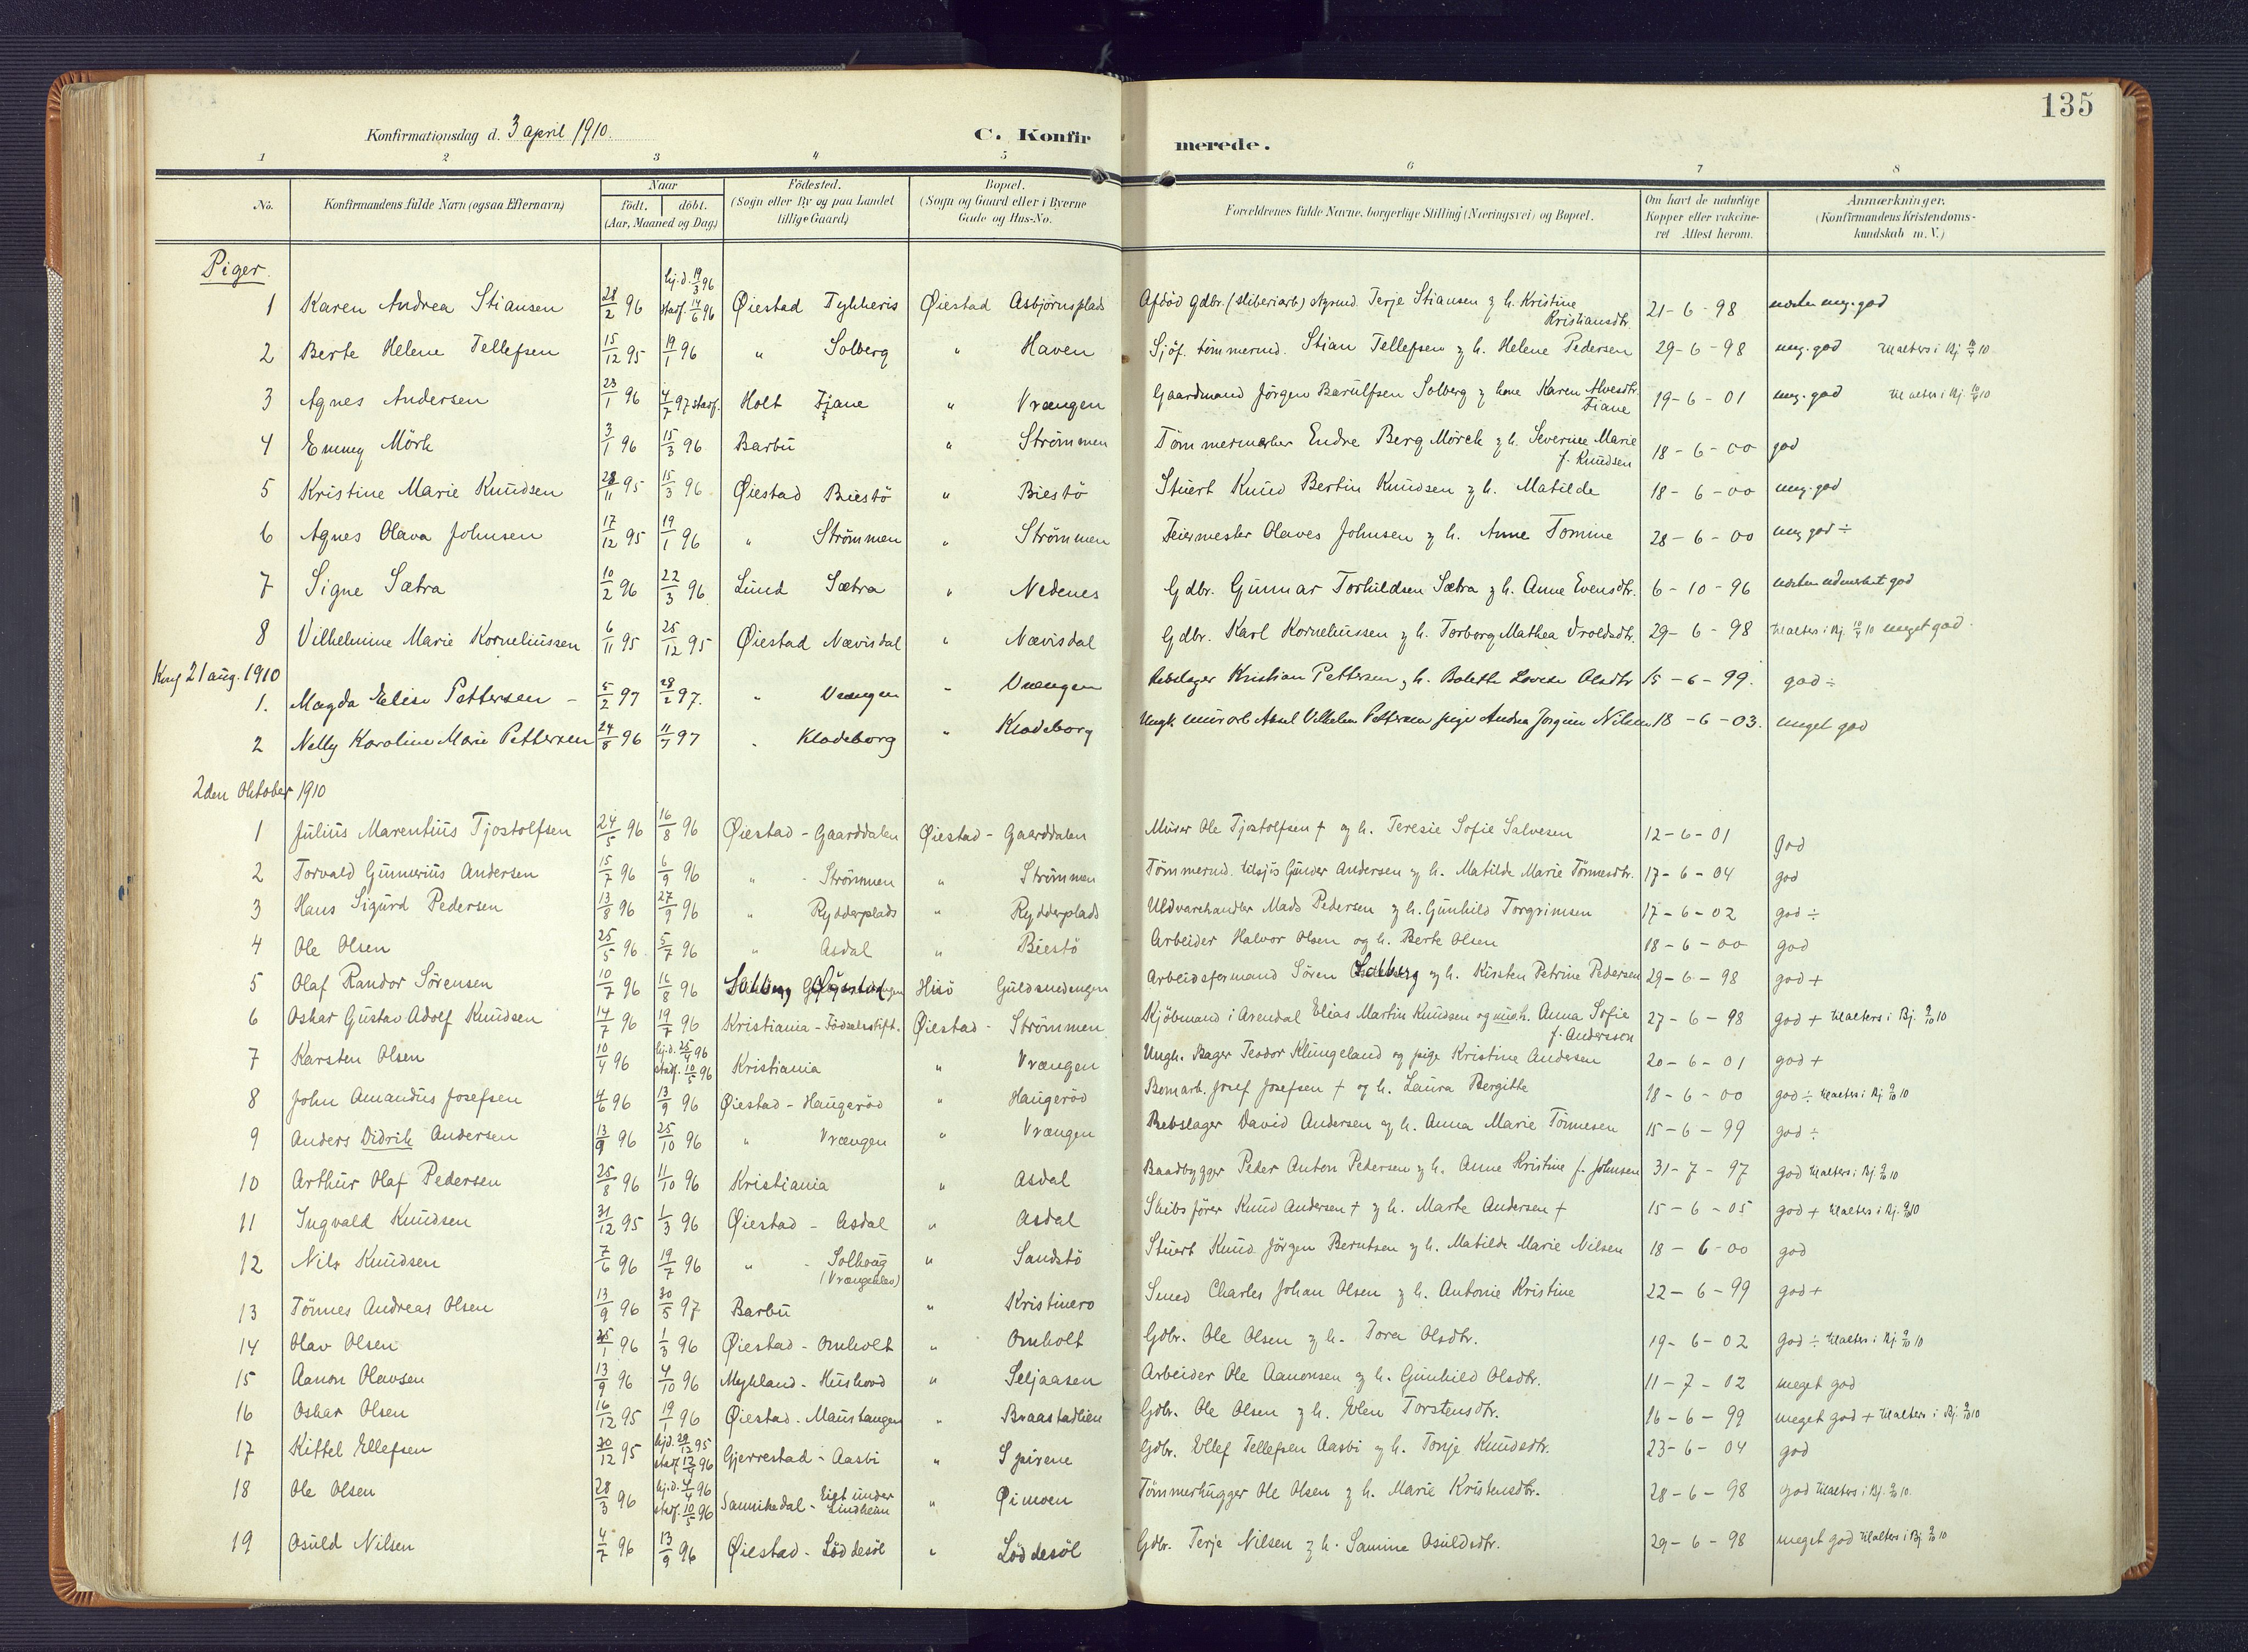 135
Konfirmationsdag d. 3 april 1910.
C. Konfirmerede.
1 2 3 4 5 6 7 8
No. Konfirmandens fulde Navn (ogsaa Efternavn) Naar født. døbt. (Aar, Maaned og Dag) Fødested. (Sogn eller By og paa Landet tillige Gaard) Bopæl. (Sogn og Gaard eller i Byerne Gade og Hus-No. Forældrenes fulde Navne, borgerlige Stilling (Næringsvei) og Bopæl. Om havt de naturlige Kopper eller vakcineret Attest herom. Anmærkninger. (Konfirmandens Kristendomskundskab m. V.)
Piger.
1 Karen Andrea Stiansen 28/2 96 hj.d. 19/3 96 stadf. 14/6 96 Øiestad Asbjørnsplads Afdød gdbr. Terje Stiansen & h. Kristine Kristiansdtr. 21-6-98 næsten meg. god
2 Berte Helene Tellefsen 15/12 95 19/1 96 " Solberg " Haven Sjøf. tømmermd. Stian Tellefsen & h. Helene Pedersen 29-6-98 meg. god til alters i Bj. 10/4 10
3 Agnes Andersen 23/1 96 4/7 97 stadf. Holt Fjane " Vrængen Gaardmand Jørgen Barulfsen Solberg & hme Karen Alvesdtr. Fiane 19-6-01 meg. god til alters i Bj. 10/4 10
4 Emmy Mörk 3/1 96 15/3 96 Barbu " Strømmen Tømmermerker Endre Berg Mörck & h. Severine Marie f. Knudsen 18-6-00 god
5 Kristine Marie Knudsen 28/11 95 15/3 96 Øiestad Biestö " Biestö Stuert Knud Bertin Knudsen & h. Matilde 18-6-00 meg. god
6 Agnes Olava Johnsen 17/12 95 19/1 96 " Strömmen " Strömmen Feiermester Olaves Johnsen & h. Anne Tomine 28-6-00 meg god ÷
7 Signe Sætra 10/2 96 22/3 96 Lund Sætra " Nedenes Gdbr. Gunnar Torkildsen Sætra & h. Anne Evensdtr. 6-10-96 næsten udmerket god
8 Vilhelmine Marie Korneliussen 6/11 95 25/12 95 Øiestad Nævisdal " Nævisdal Gdbr. Karl Korneliussen & h. Torborg Mathea Iroldsdtr. 29-6-98 til alters i Bj. 10/4 10 meget god
Konf 21 aug. 1910
1. Magda Elise Pettersen - 5/2 97 28/2 97. " Vrængen " Vrængen Rebslager Kristian Pettersen & h. Bolette Lovise Olsdtr 15-6-99. god ÷
2 Nelly Karoline Marie Pettersen 24/8 96 11/7 97 " Klodeborg " Klodeborg Ungk. murarb Aksel Vilhelm Pettersen pige Andrea Jorgine Nilsen 18-6-03. meget god
2den Oktober 1910
1 Julius Marentius Tjostolfsen 24/5 96 16/8 96 Øiestad - Gaarddalen Øiestad - Gaarddalen Murer Ole Tjostolfsen † og h. Teresie Sofie Salvesen 12-6-01 god
2 Torvald Gunnerius Andersen 15/7 96 6/9 96 " - Strömmen " Strömmen Tömmermd. tilsjös Gunder Andersen og h. Matilde Marie Tönnesdtr. 17-6-04 god
3 Hans Sigurd Pedersen 13/8 96 27/9 96 " Rydderplads " Rydderplads Uldvarehandler Mads Pedersen & h. Gunhild Torgrimsen 17-6-02 god ÷
4 Ole Olsen 25/5 96. 5/7 96 " Asdal " Biestö Arbeider Halvor Olsen og h. Berte Olsen 18-6-00 god
5 Olaf Randor Sörensen 10/7 96 16/8 96 Hisö Guldsmedengen Arbeidsformand Sören Solberg & h. Kirsten Petrine Pedersen 29-6-98 god +
6 Oskar Gustav Adolf Knudsen 14/7 96 19/7 96 Kristiania - Födselsstift. Øiestad - Strömmen Kjöbmand i Arendal Elias Martin Knudsen og h. Anna Sofie f. Andersson 27-6-98 god + til alters i Bj. 9/10 10
7 Karsten Olsen 10/4 96 hj.d. 25/4 96 stadf. 10/5 96 Kristiania " Vrængen Ungk. Bager Teodor Klungeland og pige Kristine Andersen 20-6-01 god +
8 John Amandus Josefsen 4/6 96 13/9 96 Øiestad - Haugeröd " Haugeröd Bomarb. Josef Josefsen † og h. Laura Bergitte 18-6-00 god ÷ til alters i Bj 9/10 10
9 Anders Didrik Andersen 13/9 96 25/10 96 " Vrængen " Vrængen Rebslager David Andersen og h. Anna Marie Tönnesen 15-6-99 god ÷
10 Arthur Olaf Pedersen 25/8 96 11/10 96 Kristiania " Asdal Baadbygger Peder Anton Pedersen & h. Anne Kristine f. Johnsen 31-7-97 god til alters i Bj 9/10 10
11 Ingvald Knudsen 31/12 95 1/3 96 Øiestad - Asdal " Asdal Skibsförer Knud Andersen † & h. Marte Andersen † 15-6-05 god + til alters i Bj. 9/10 10
12 Nils Knudsen 7/6 96 19/7 96 " - Solhaug (Vrængenlev) " Sandstö Stuert Knud Jörgen Berntsen & h. Matilde Marie Nilsen 18-6-00 god
13 Tönnes Andreas Olsen 13/9 96 30/5 97 Barbu " Kristinero Smed Charles Johan Olsen & h. Antonie Kristine 22-6-99 god +
14 Olav Olsen 25/1 96 1/3 96 Øiestad - Omholt " Omholt Gdbr. Ole Olsen & h. Tora Olsdtr. 19-6-02 god ÷ til alters i Bj. 9/10 10
15 Aanon Olavsen 13/9 96 4/10 96 Mykland - Hushovd " Seljaasen Arbeider Ole Aanonsen og h. Gunhild Olsdtr. 11-7-02 meget god
16 Oskar Olsen 16/12 95 19/1 96 Øiestad - Maurtangen " Braastadlien Gdbr. Ole Olsen & h. Elen Torstensdtr. 16-6-99 meget god + til alters i Bj. 9/10 10
17 Kittel Ellefsen 30/12 95 hj.d. 95 stadf. 12/4 96 Gjerrestad - Aasbi " Spirene Gdbr. Ellef Tellefsen Aasbi og h. Tonje Knudsdtr. 23-6-04 god
18 Ole Olsen 28/3 96 hj.d. 4/4 96 stadf. 10/5 96 Sannikedal - Eiet under Lindheim " Øimoen Tömmerhugger Ole Olsen & h. Marie Kristensdtr. 28-6-98 god til alters i Bj. 9/10 10.
19 Osuld Nilsen 4/7 96 13/9 96 Øiestad - Löddesöl " Löddesöl Gdbr. Terje Nilsen & h. Samine Osuldsdtr. 29-6-98 meget god til alters i Bj 9/10 10